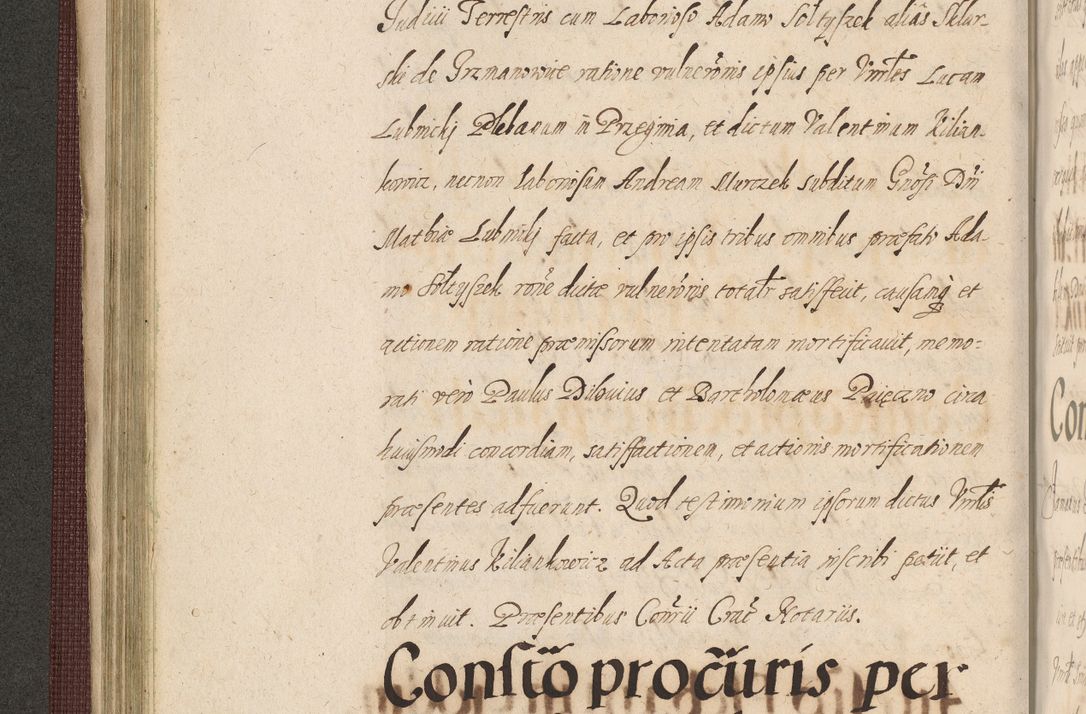 Judicii Terrestris cum Laborioso Adamo Sołtyszek alias Sklar-
ski de Grzmanowice ratione vulneroĩs ipsius per Vnrłes Lucam
Lubnickj Plebanum in Przeginia, et dictum Valentinum Kilian-
kowicz, necnon laboriosum Andream Murczek subditum Gnosi Dni
Mathiæ Lubnickj facta, et pro ipsis tribus omnibus præfato Ada-
mo Sołtyszek roñe dictæ vulneroĩs totalr satisfecit, causamq̃ et
actionem ratione præmissorum intentatam mortificauit, memo-
rati vero Paulus Dilouius et Bartholomæus Paięczno circa
huiusmodi concordiam, satisfactionem, et actionis mortificationem
præsentes adfuerunt. Quod testimonium ipsorum dictus Vnrlis
Valentinus Kiliankowicz ad Acta præsentia inscribi petiit, et
obtinuit. Præsentibus Conrii Crac Notariis.
Constõ procũris per